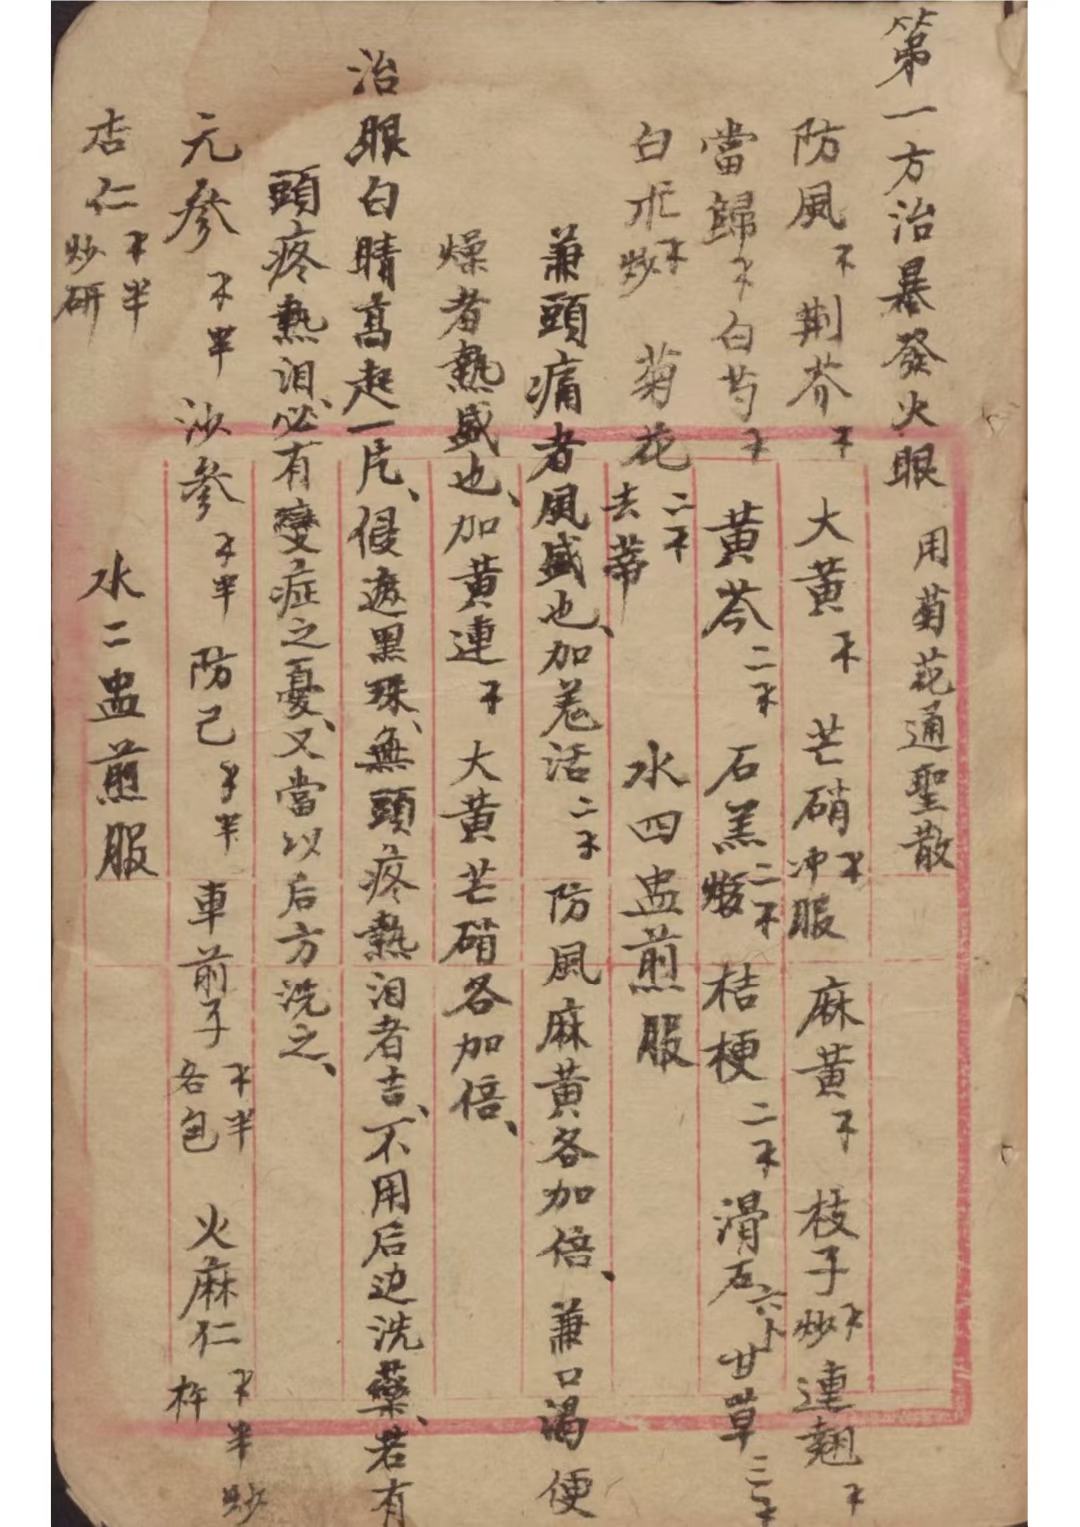 第一方治暴發火眼 用菊花通聖散
防風 荆芥 大黃 芒硝冲服 麻黃 枝子炒 連翹
當歸 白芍 黃芩二 石羔煅二 桔梗二 滑石六 甘草三
白朮炒 菊花去蒂二 水四盅煎服
兼頭痛者風盛也、加羗活二 防風麻黃各加倍、兼口渴便
燥者熱盛也、加黃連 大黃芒硝各加倍、
治眼白睛高起一片、侵遮黑珠、無頭疼熱泪者吉、不用后边洗藥、若有
頭疼熱泪、必有變症之憂、又當以后方洗之、
元參半 沙參半 防己半 車前子半各包 火麻仁半杵炒
杏仁半炒研 水二盅煎服